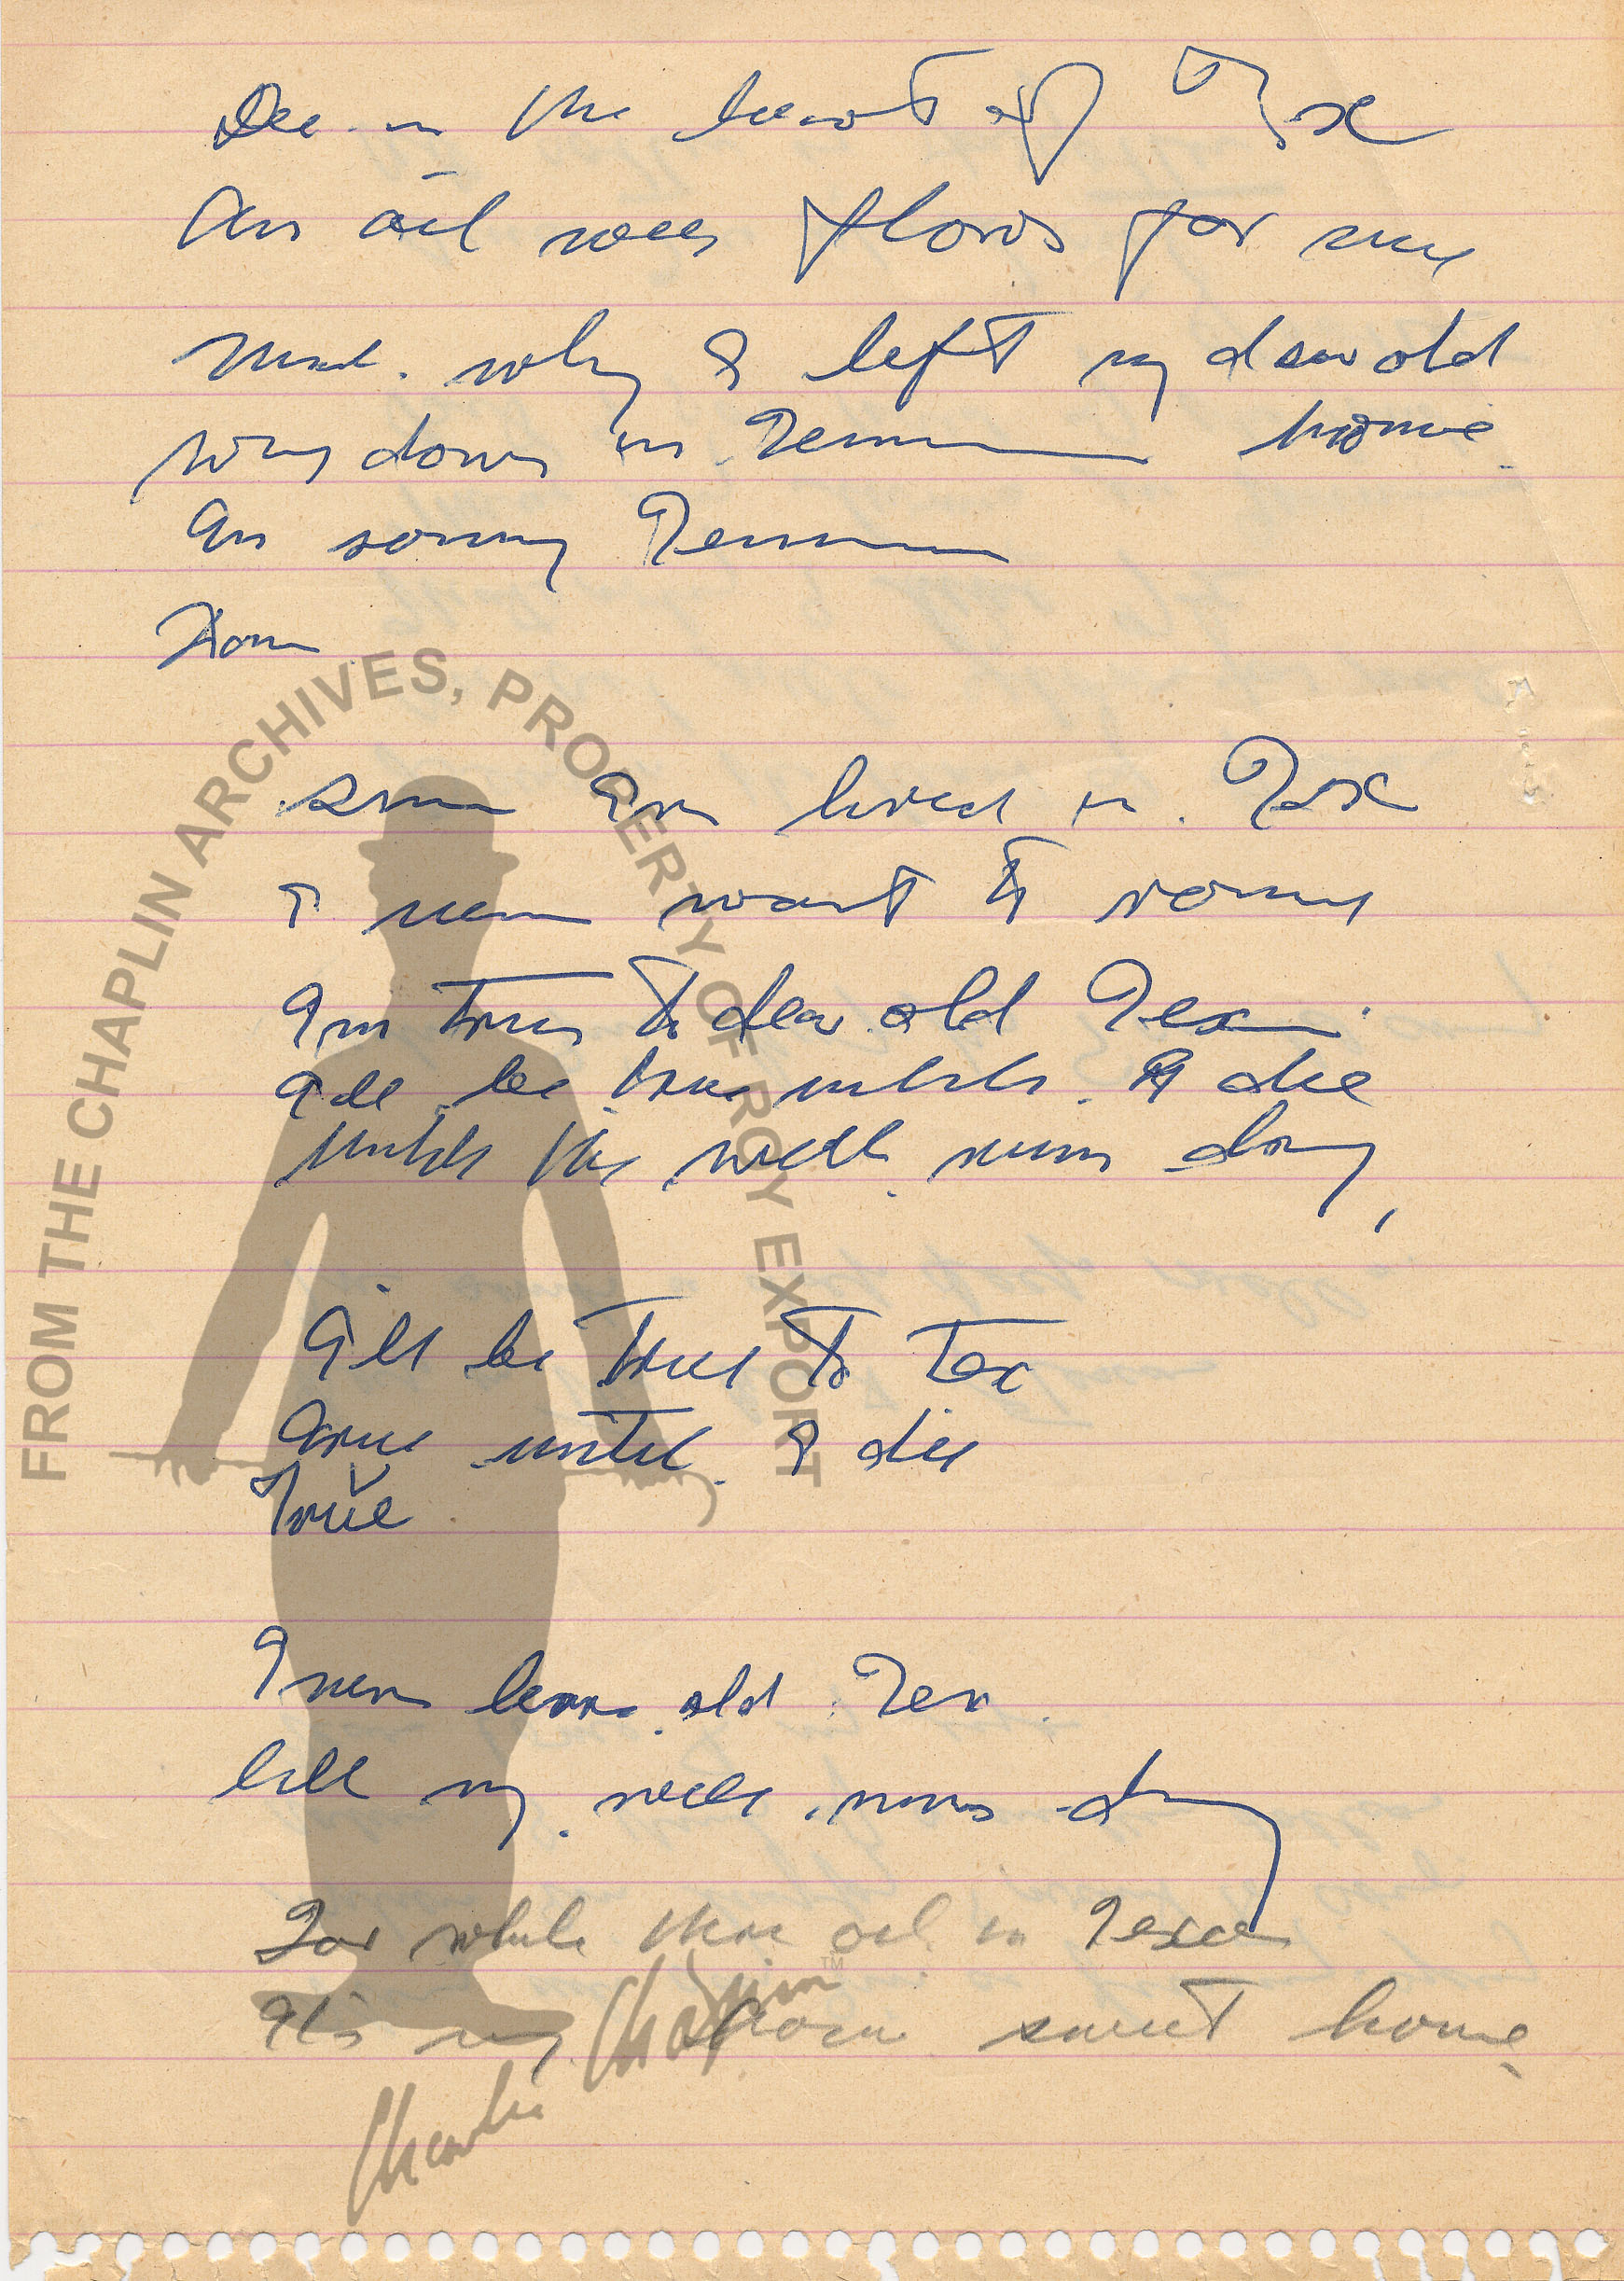 in the heart of Tex
An oil well flows for me
why I left my dear old
way down in Tenn home
in sunny Tenn
Home
since I've lived in Tex
I never want to roam
I'm true to dear old Tex
I'll be true until I die
until the well runs dry,
I'll be true to Tex
true until I die
True
I never leave old Tex
till my well runs dry
For while there oil in Texas
It's my home sweet home
FROM THE CHAPLIN ARCHIVES, PROPERTY OF ROY EXPORT
Charlie Chaplin™